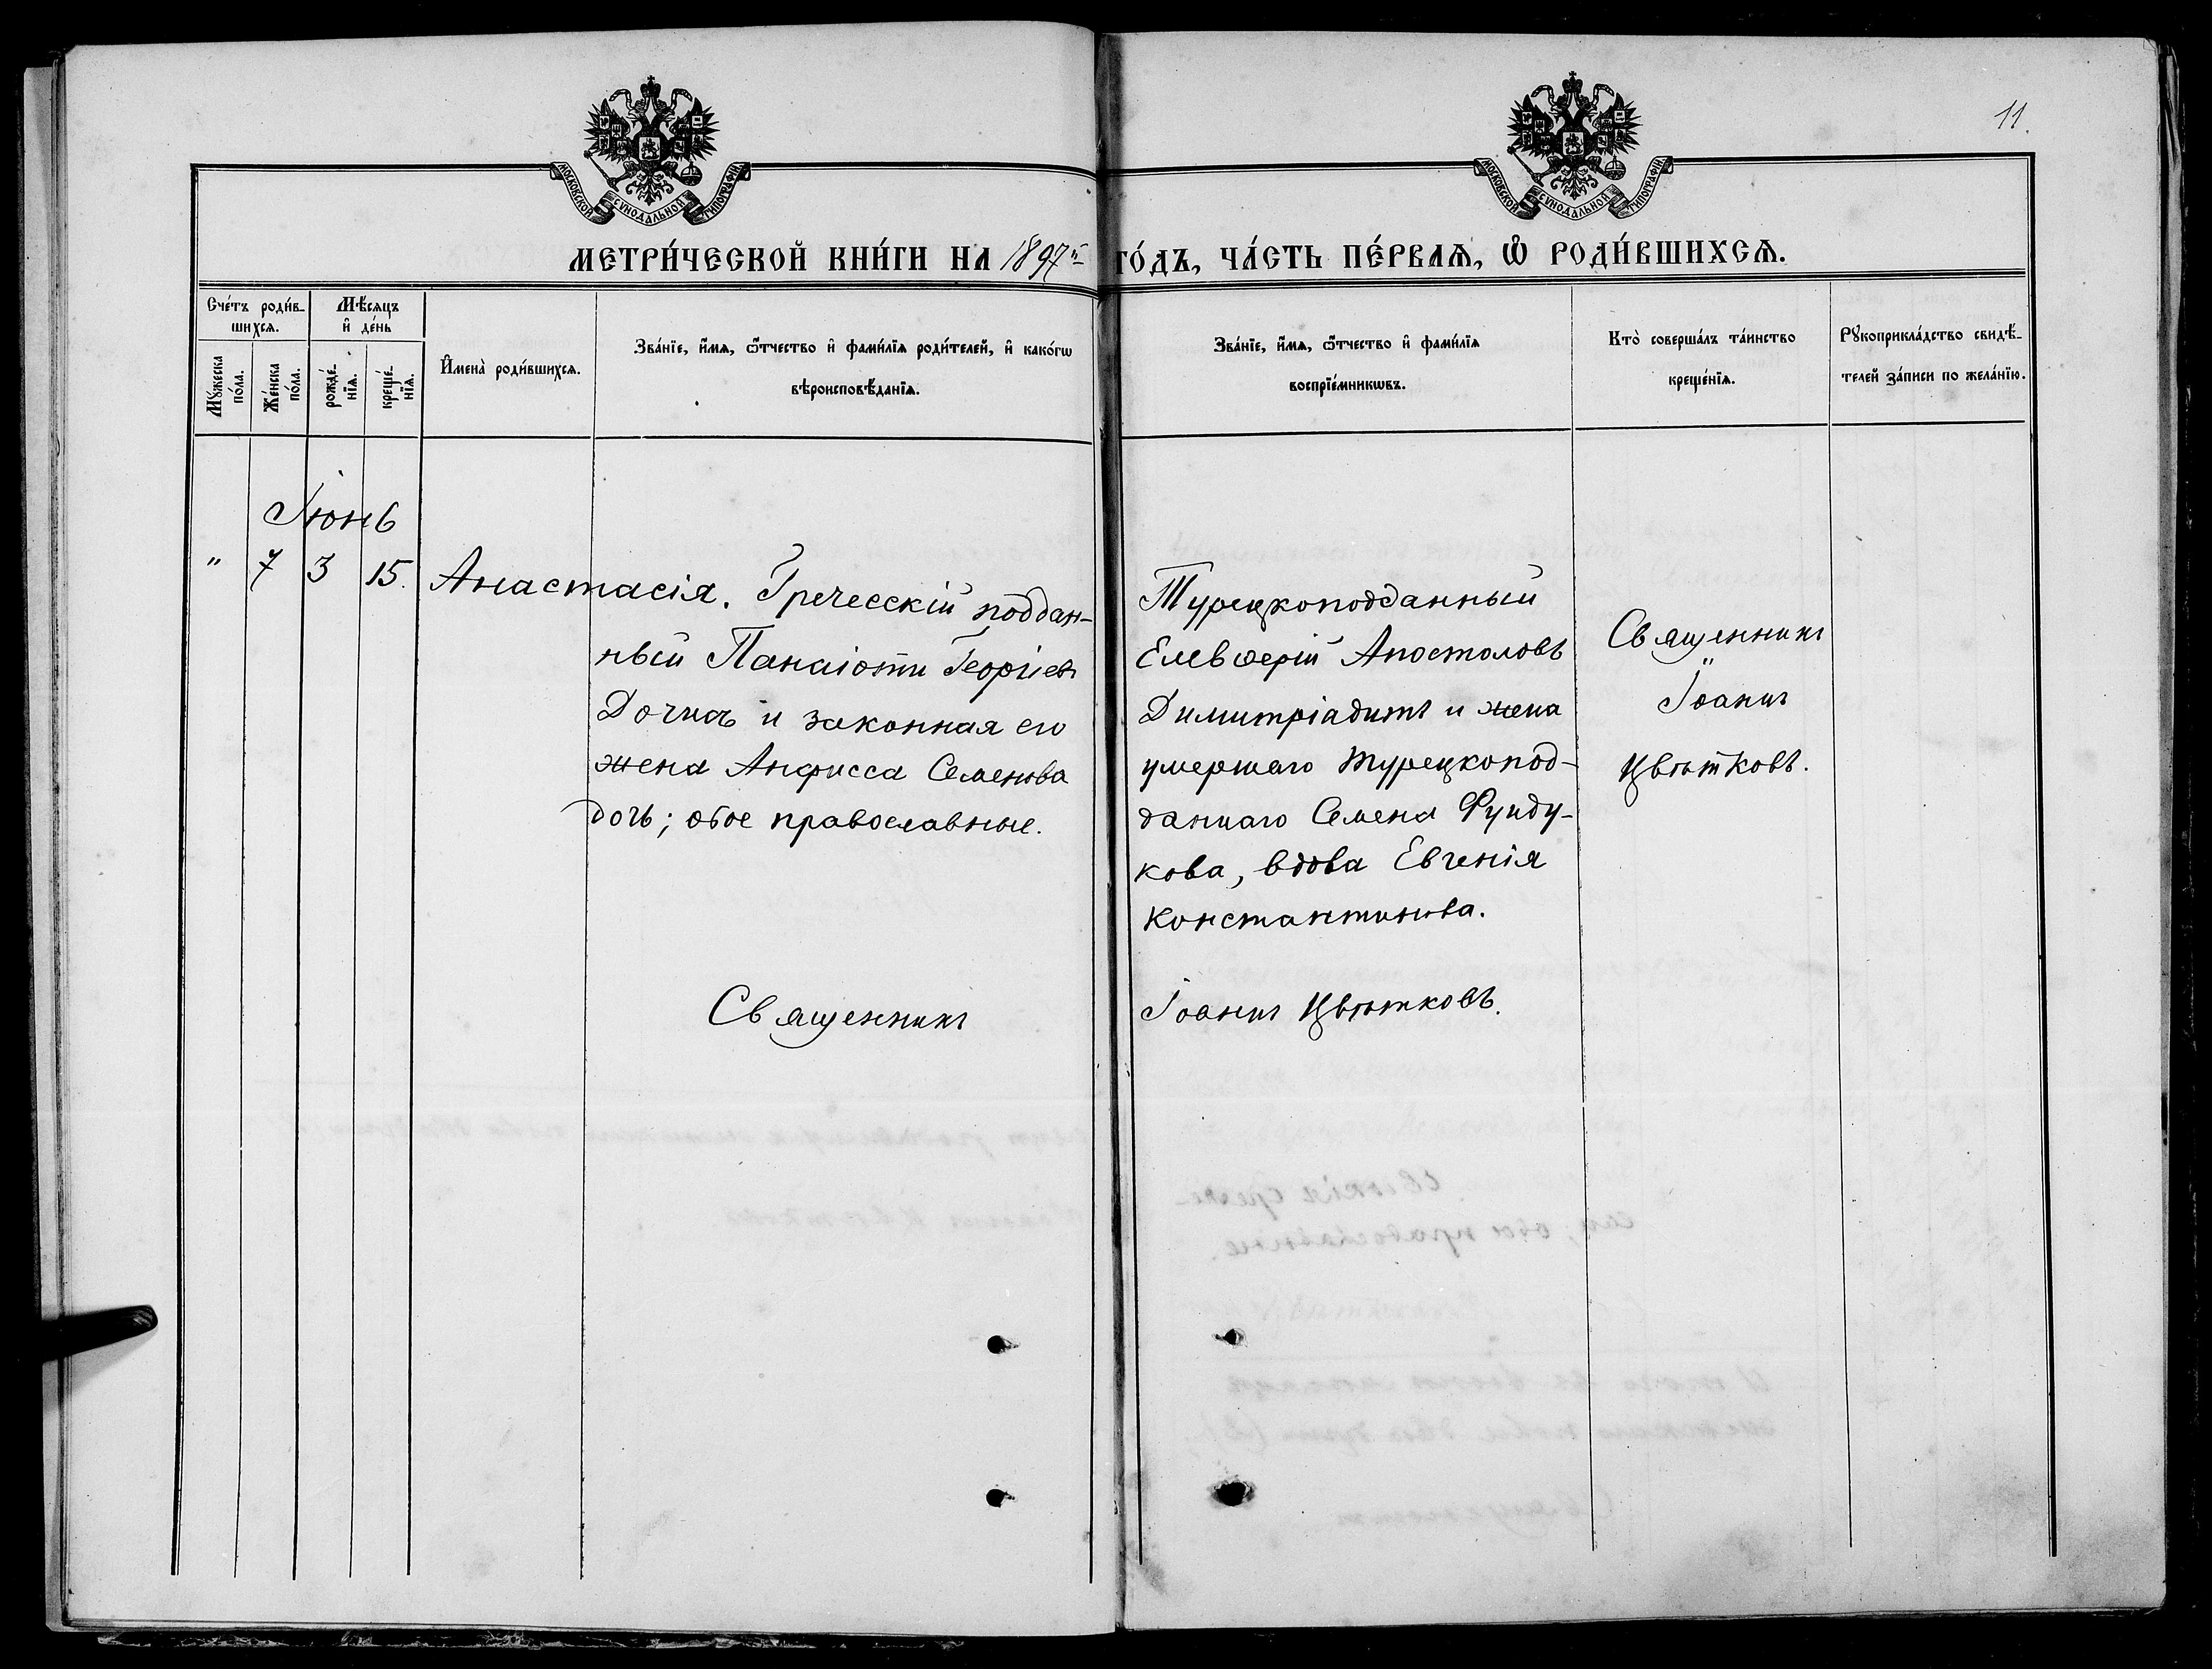 11.
МОСКОВСКОЙ СѴНОДАЛЬНОЙ ТИПОГРАФІИ
МОСКОВСКОЙ СѴНОДАЛЬНОЙ ТИПОГРАФІИ
МЕТРИ́ЧЕСКОЙ КНИ́ГИ НА 1897й ГО́ДЪ, ЧА́СТЬ ПЕ́РВАѦ, Ѡ҆ РОДИ́ВШИХСѦ.
Сче́тъ роди́в-
шихсѧ.
Мꙋ́жеска по́ла.
Же́нска по́ла.
Мѣ́сѧцъ
и҆ де́нь
рожде́-
нїѧ.
креще́-
нїѧ.
И҆мена̀ роди́вшихсѧ.
Зва́нїе, и҆́мѧ, ѻ҆́тчество и҆ фами́лїѧ роди́телей, и҆ како́гѡ
вѣроисповѣ́данїѧ.
Зва́нїе, и҆́мѧ, ѻ҆́тчество и҆ фами́лїѧ
воспрїе́мникѡвъ.
Кто̀ соверша́лъ та́инство
креще́нїѧ.
Рꙋкоприкла́дство свидѣ́-
телей за́писи по жела́нїю.
Іюнь
" 7 3 15. Анастасія.
Греческій поддан-
ный Панаіоти Георгіевъ
Дочиа и законная его
жена Анфисса Семенова
дочь; обое православные.
Турецкоподданный
Елевѳерій Апостоловъ
Димитріадитъ и жена
умершаго турецкопод-
даннаго Семена Фунду-
кова, вдова Евгенія
Константинова.
Священникъ
Іоаннъ
Цвѣтковъ.
Священникъ Іоаннъ Цвѣтковъ.